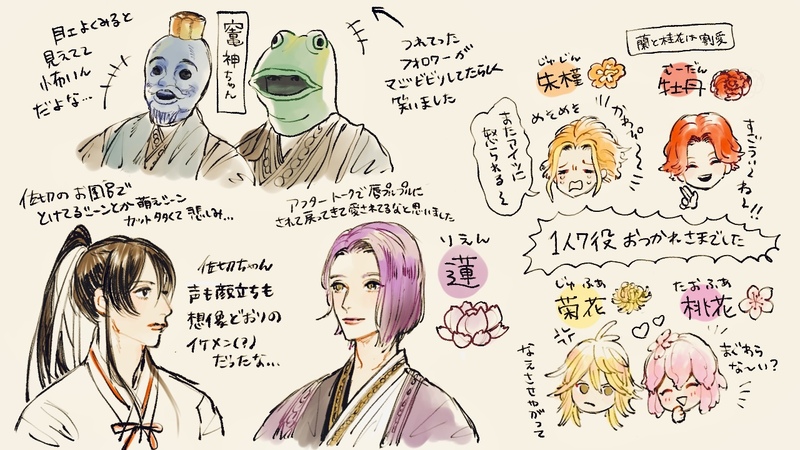 目エよくみると
見えてて
怖いん
だよな…
竈神ちゃん
つれてった
フォロワーが
マジビビリしてたらしく
笑いました
蘭と桂花は割愛
じゅじん
朱槿
むーだん
牡丹
めそめそ
またアイツに
怒られる〜
かわい〜
すごういくねぇ!!
佐切のお団子で
とけてるシーンとか萌えシーン
カット多くて悲しみ…
アフタートークで唇プルプルに
されて戻ってきて愛されてるなと思いました
1人7役 おつかれさまでした
佐切ちゃん
声も顔立ちも
想像どおりの
イケメン(?)
だったな…
りえん
蓮
じゅふぁ
菊花
たおふぁ
桃花
なえさせやがって
まぐわら
な〜い?